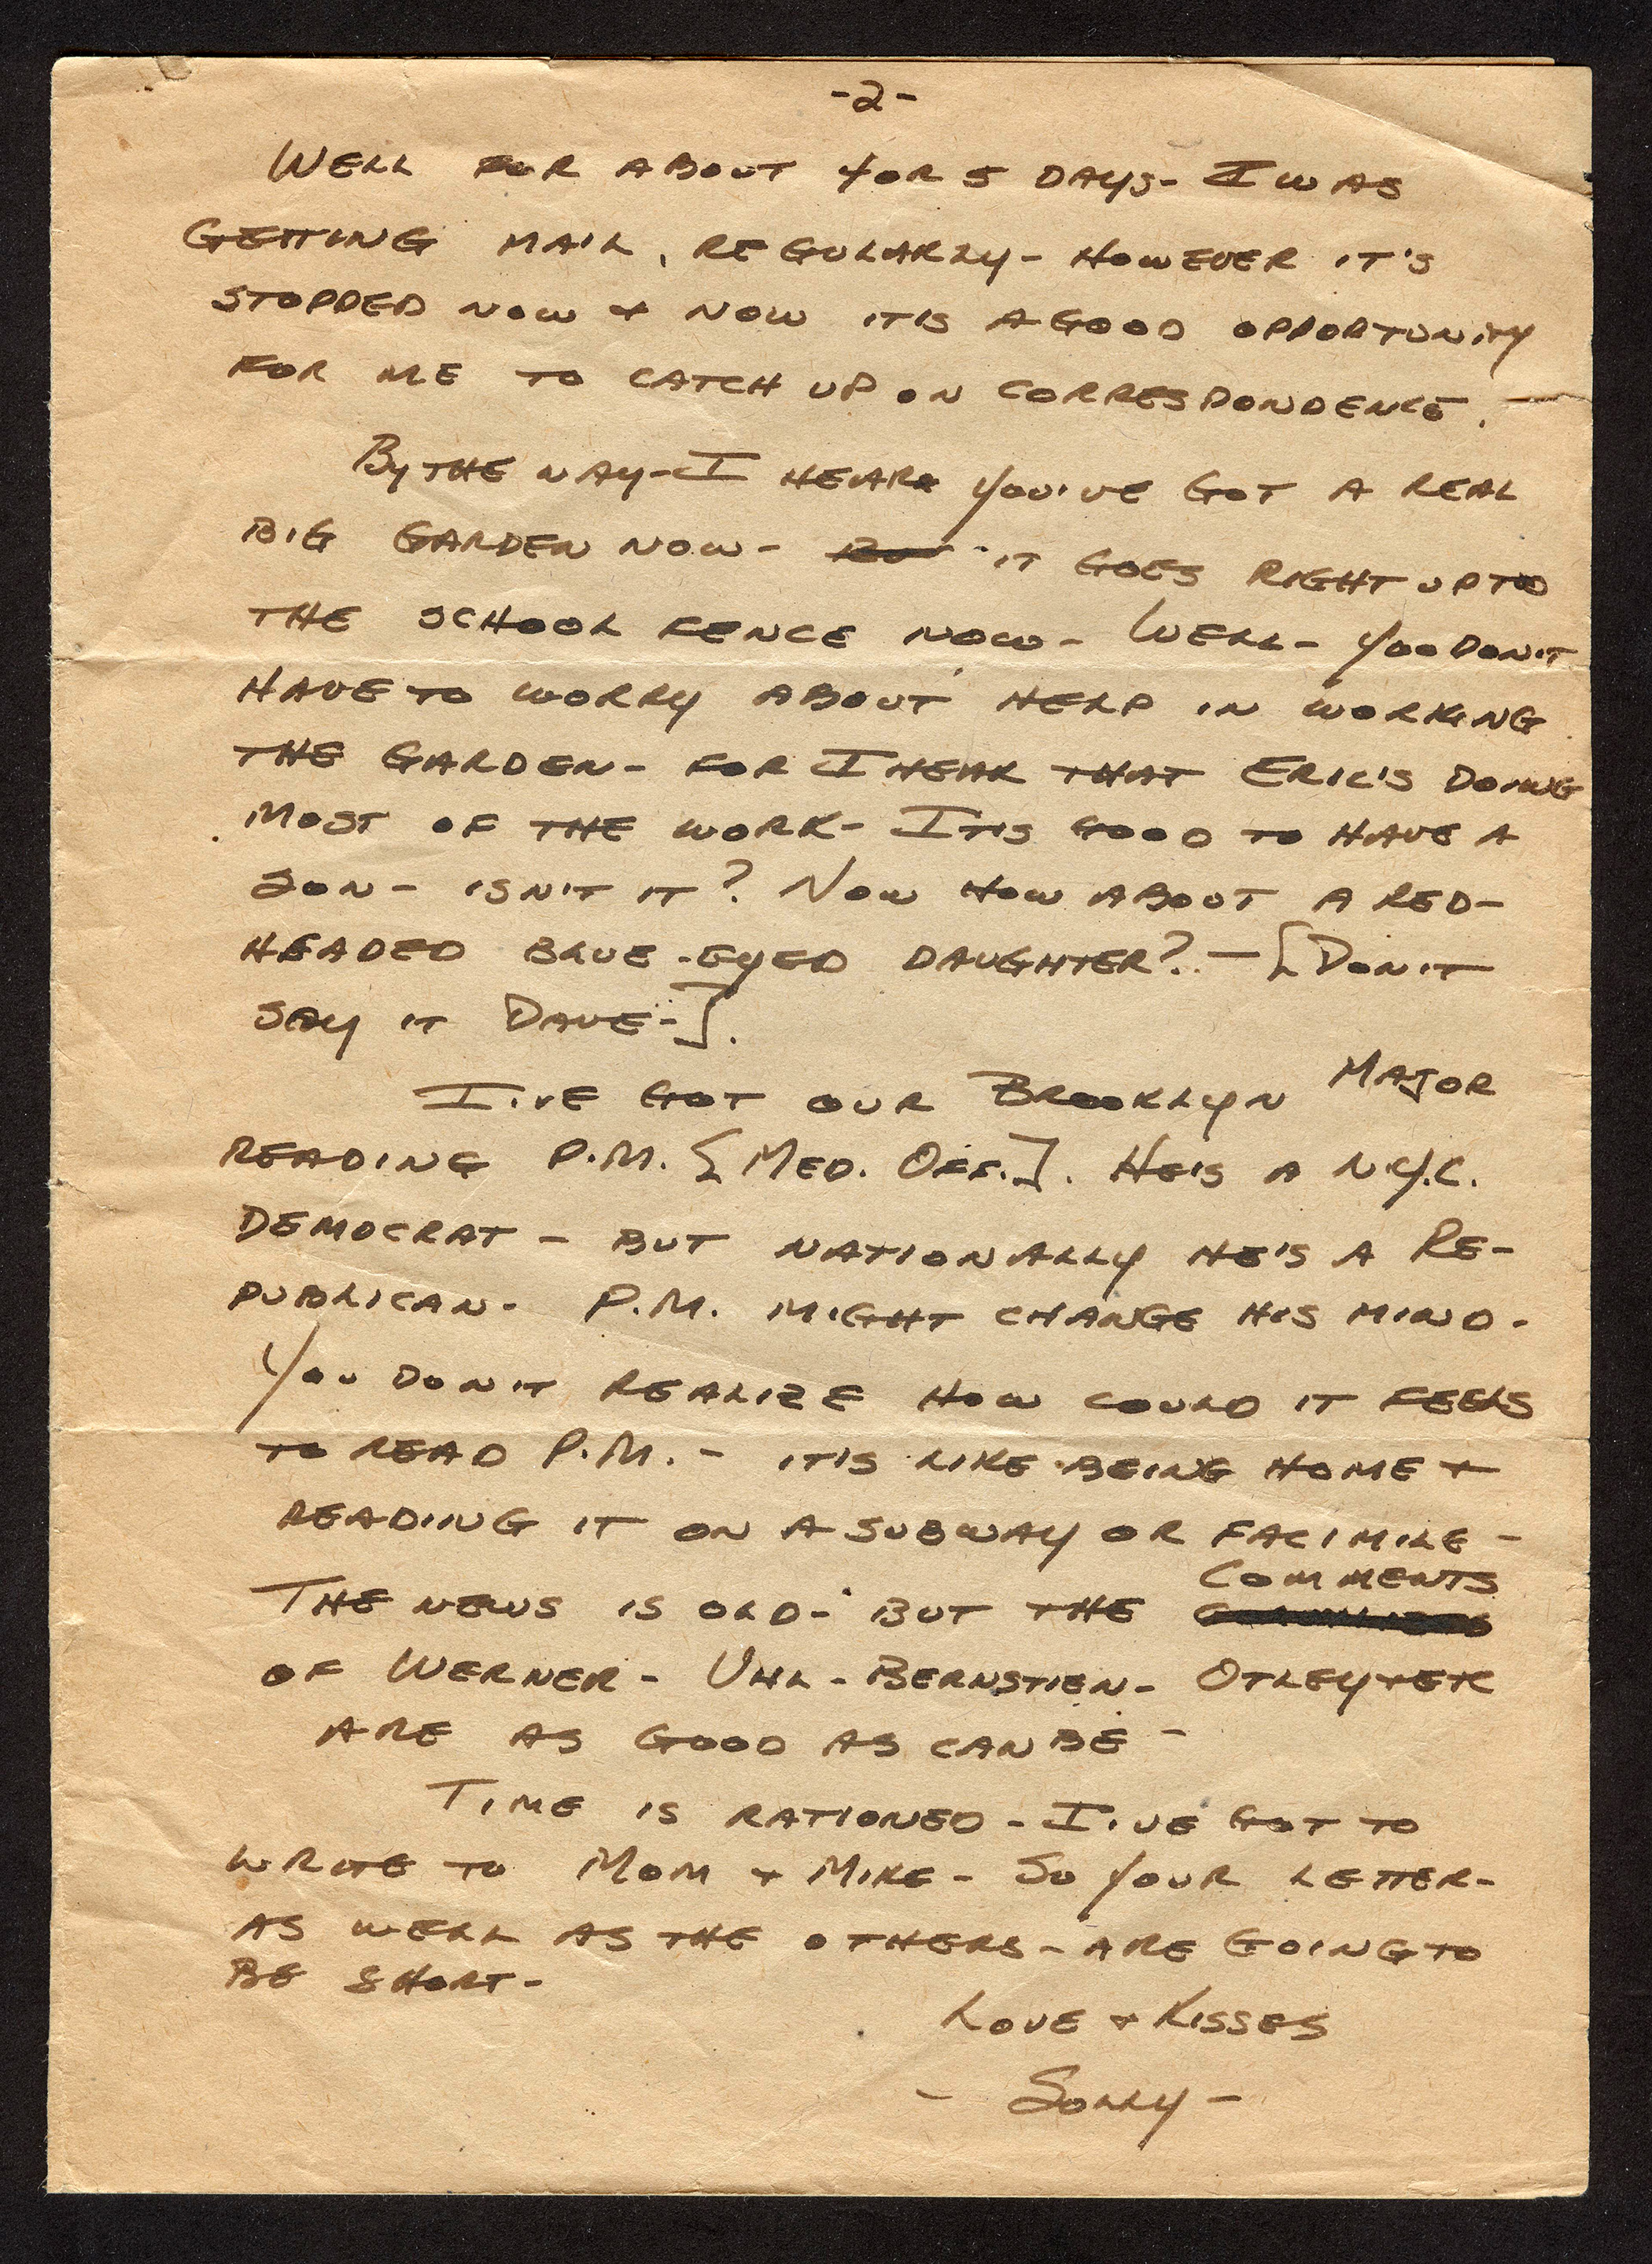 -2-
WELL FOR ABOUT 4 OR 5 DAYS- I WAS
GETTING MAIL, REGULARLY- HOWEVER IT'S
STOPPED NOW + NOW IT IS A GOOD OPPORTUNITY
FOR ME TO CATCH UP ON CORRESPONDENCE.
BY THE WAY-I HEAR YOU'VE GOT A REAL
BIG GARDEN NOW- IT GOES RIGHT UP TO
THE SCHOOL FENCE NOW- WELL- YOU DON'T
HAVE TO WORRY ABOUT HELP IN WORKING
THE GARDEN- FOR I HEAR THAT ERIC'S DOING
MOST OF THE WORK- IT'S GOOD TO HAVE A
SON- ISN'T IT? NOW HOW ABOUT A RED-
HEADED BLUE-EYED DAUGHTER?.- [DON'T
SAY IT DAVE-].
I'VE GOT OUR BROOKLYN MAJOR
READING P.M. [MED. OFF.]. HE'S A N.Y.C.
DEMOCRAT - BUT NATIONALLY HE'S A RE-
PUBLICAN- P.M. MIGHT CHANGE HIS MIND-
YOU DON'T REALIZE HOW COULD IT FEELS
TO READ P.M. - IT'S LIKE BEING HOME +
READING IT ON A SUBWAY OR FACIMILE -
THE NEWS IS OLD- BUT THE COMMENTS
OF WERNER- UHL-BERNSTIEN- OTLEY + ETC
ARE AS GOOD AS CAN BE -
TIME IS RATIONED - I'VE GOT TO
WRITE TO MOM + MIKE - SO YOUR LETTER-
AS WELL AS THE OTHERS - ARE GOING TO
BE SHORT-
LOVE + KISSES
- SOLLY -